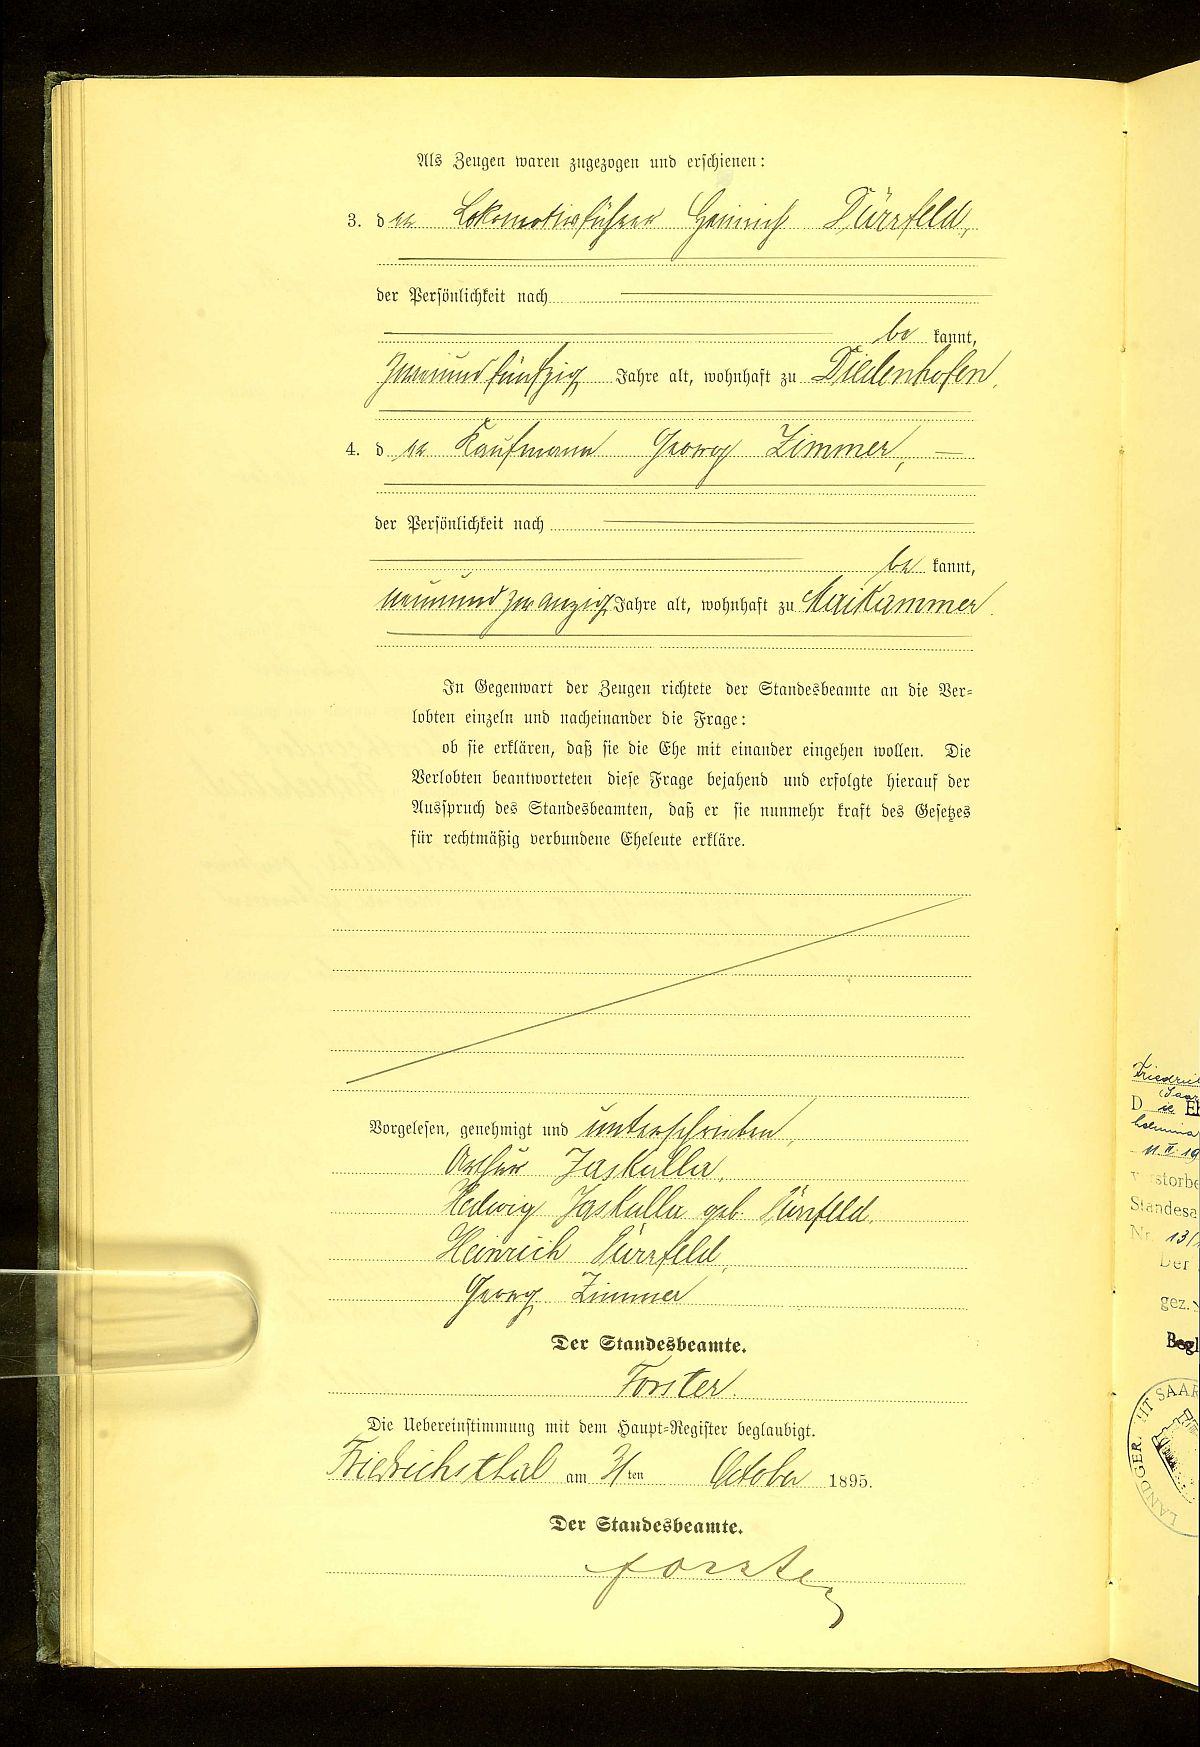 Als Zeugen waren zugezogen und erschienen:
3. der Lokomotivführer Heinrich Dürrfeld,
der Persönlichkeit nach
be kannt,
zweiundfünfzig Jahre alt, wohnhaft zu Diedenhofen.
4. der Kaufmann Georg Zimmer, —
der Persönlichkeit nach
be kannt,
neunundzwanzig Jahre alt, wohnhaft zu Maikammer.
In Gegenwart der Zeugen richtete der Standesbeamte an die Ver=
lobten einzeln und nacheinander die Frage:
ob sie erklären, daß sie die Ehe mit einander eingehen wollen. Die
Verlobten beantworteten diese Frage bejahend und erfolgte hierauf der
Ausspruch des Standesbeamten, daß er sie nunmehr kraft des Gesetzes
für rechtmäßig verbundene Eheleute erkläre.
Vorgelesen, genehmigt und unterschrieben,
Arthur Jaskulla,
Hedwig Jaskulla geb. Dürrfeld.
Heinrich Dürrfeld,
Georg Zimmer
Der Standesbeamte.
Forster.
Die Uebereinstimmung mit dem Haupt=Register beglaubigt.
Friedrichsthal am 31ten October 1895.
Der Standesbeamte.
Forster
Friedrich
(Saar
D ie Eh
11. II. 19
storbe
Standesa
Nr. 13/
Der
gez.
Begl
LANDGER. HT SAAR